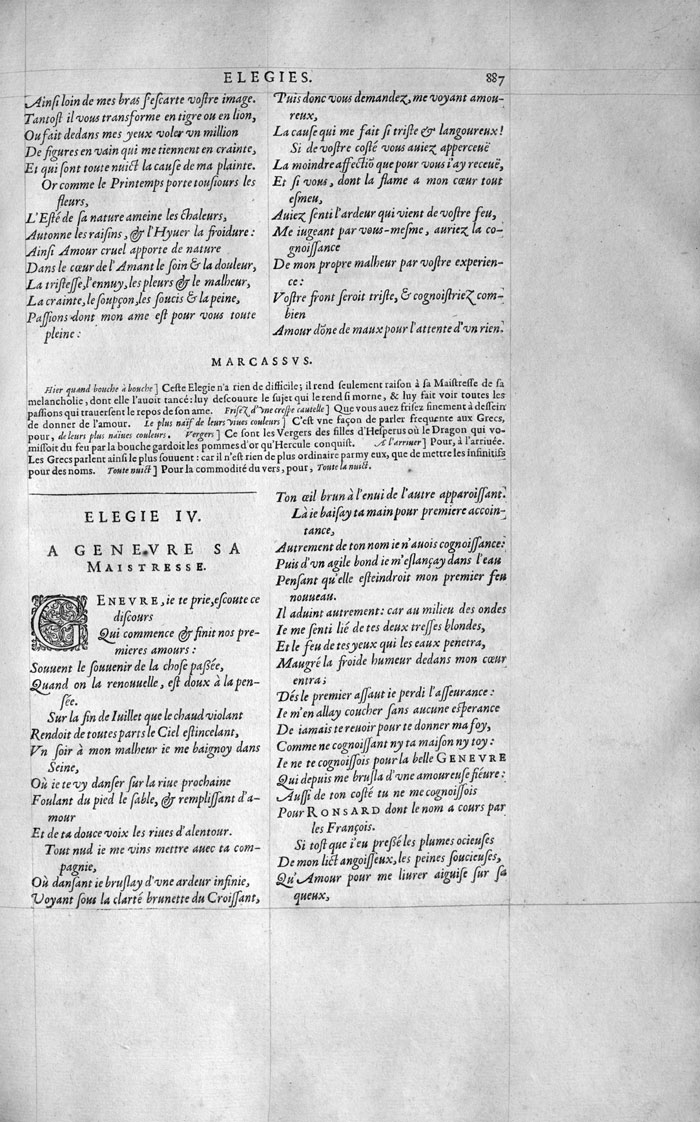 ELEGIES. 887
Ainſi loin de mes bras s'eſcarte voſtre image.
Tantoſt il vous transforme en tigre ou en lion,
Ou fait dedans mes yeux voler vn million
De figures en vain qui me tiennent en crainte,
Et qui ſont toute nuict la cauſe de ma plainte.
Or comme le Printemps porte touſiours les
fleurs,
L'Eſté de ſa nature ameine les chaleurs,
Autonne les raiſins, & l'Hyuer la froidure:
Ainſi Amour cruel apporte de nature
Dans le cœur de l'Amant le ſoin & la douleur,
La triſteſſe, l'ennuy, les pleurs & le malheur,
La crainte, le ſoupçon, les ſoucis & la peine,
Paſſions dont mon ame eſt pour vous toute
pleine:
Puis donc vous demandez, me voyant amou-
reux,
La cauſe qui me fait ſi triſte & langoureux!
Si de voſtre coſté vous auiez apperceuë
La moindre affectiõ que pour vous i'ay receuë,
Et ſi vous, dont la flame a mon cœur tout
eſmeu,
Auiez ſenti l'ardeur qui vient de voſtre feu,
Me iugeant par vous-meſme, auriez la co-
gnoiſſance
De mon propre malheur par voſtre experien-
ce:
Voſtre front ſeroit triſte, & cognoiſtriez com-
bien
Amour dõne de maux pour l'attente d'vn rien.
MARCASSVS.
Hier quand bouche à bouche] Ceſte Elegie n'a rien de difficile; il rend ſeulement raiſon à ſa Maiſtreſſe de ſa
melancholie, dont elle l'auoit tancé: luy deſcouure le ſujet qui le rend ſi morne, & luy fait voir toutes les
paſſions qui trauerſent le repos de ſon ame. Friſez d'vne creſpe cautelle] Que vous auez friſez finement à deſſein
de donner de l'amour. Le plus naïf de leurs viues couleurs] C'eſt vne façon de parler frequente aux Grecs,
pour, de leurs plus naïues couleurs. Vergers] Ce ſont les Vergers des filles d'Heſperus où le Dragon qui vo-
miſſoit du feu par la bouche gardoit les pommes d'or qu'Hercule conquiſt. A l'arriuer] Pour, à l'arriuée.
Les Grecs parlent ainſi le plus ſouuent: car il n'eſt rien de plus ordinaire parmy eux, que de mettre les infinitifs
pour des noms. Toute nuict] Pour la commodité du vers, pour, Toute la nuict.
ELEGIE IV.
A GENEVRE SA
MAISTRESSE.
GENEVRE, ie te prie, eſcoute ce
diſcours
Qui commence & finit nos pre-
mieres amours:
Souuent le ſouuenir de la choſe paſſée,
Quand on la renouuelle, eſt doux à la pen-
ſée.
Sur la fin de Iuillet que le chaud violant
Rendoit de toutes parts le Ciel eſtincelant,
Vn ſoir à mon malheur ie me baignoy dans
Seine,
Où ie te vy danſer ſur la riue prochaine
Foulant du pied le ſable, & rempliſſant d'a-
mour
Et de ta douce voix les riues d'alentour.
Tout nud ie me vins mettre auec ta com-
pagnie,
Où danſant ie bruſlay d'vne ardeur infinie,
Voyant ſous la clarté brunette du Croiſſant,
Ton œil brun à l'enui de l'autre apparoiſſant.
Là ie baiſay ta main pour premiere accoin-
tance,
Autrement de ton nom ie n'auois cognoiſſance:
Puis d'vn agile bond ie m'eſlançay dans l'eau
Penſant qu'elle eſteindroit mon premier feu
nouueau.
Il aduint autrement: car au milieu des ondes
Ie me ſenti lié de tes deux treſſes blondes,
Et le feu de tes yeux qui les eaux penetra,
Maugré la froide humeur dedans mon cœur
entra;
Dés le premier aſſaut ie perdi l'aſſeurance:
Ie m'en allay coucher ſans aucune eſperance
De iamais te reuoir pour te donner ma foy,
Comme ne cognoiſſant ny ta maiſon ny toy:
Ie ne te cognoiſſois pour la belle GENEVRE
Qui depuis me bruſla d'vne amoureuſe fiéure:
Auſſi de ton coſté tu ne me cognoiſſois
Pour RONSARD dont le nom a cours par
les François.
Si toſt que i'eu preßé les plumes ocieuſes
De mon lict angoiſſeux, les peines ſoucieuſes,
Qu'Amour pour me liurer aiguiſe ſur ſa
queux,